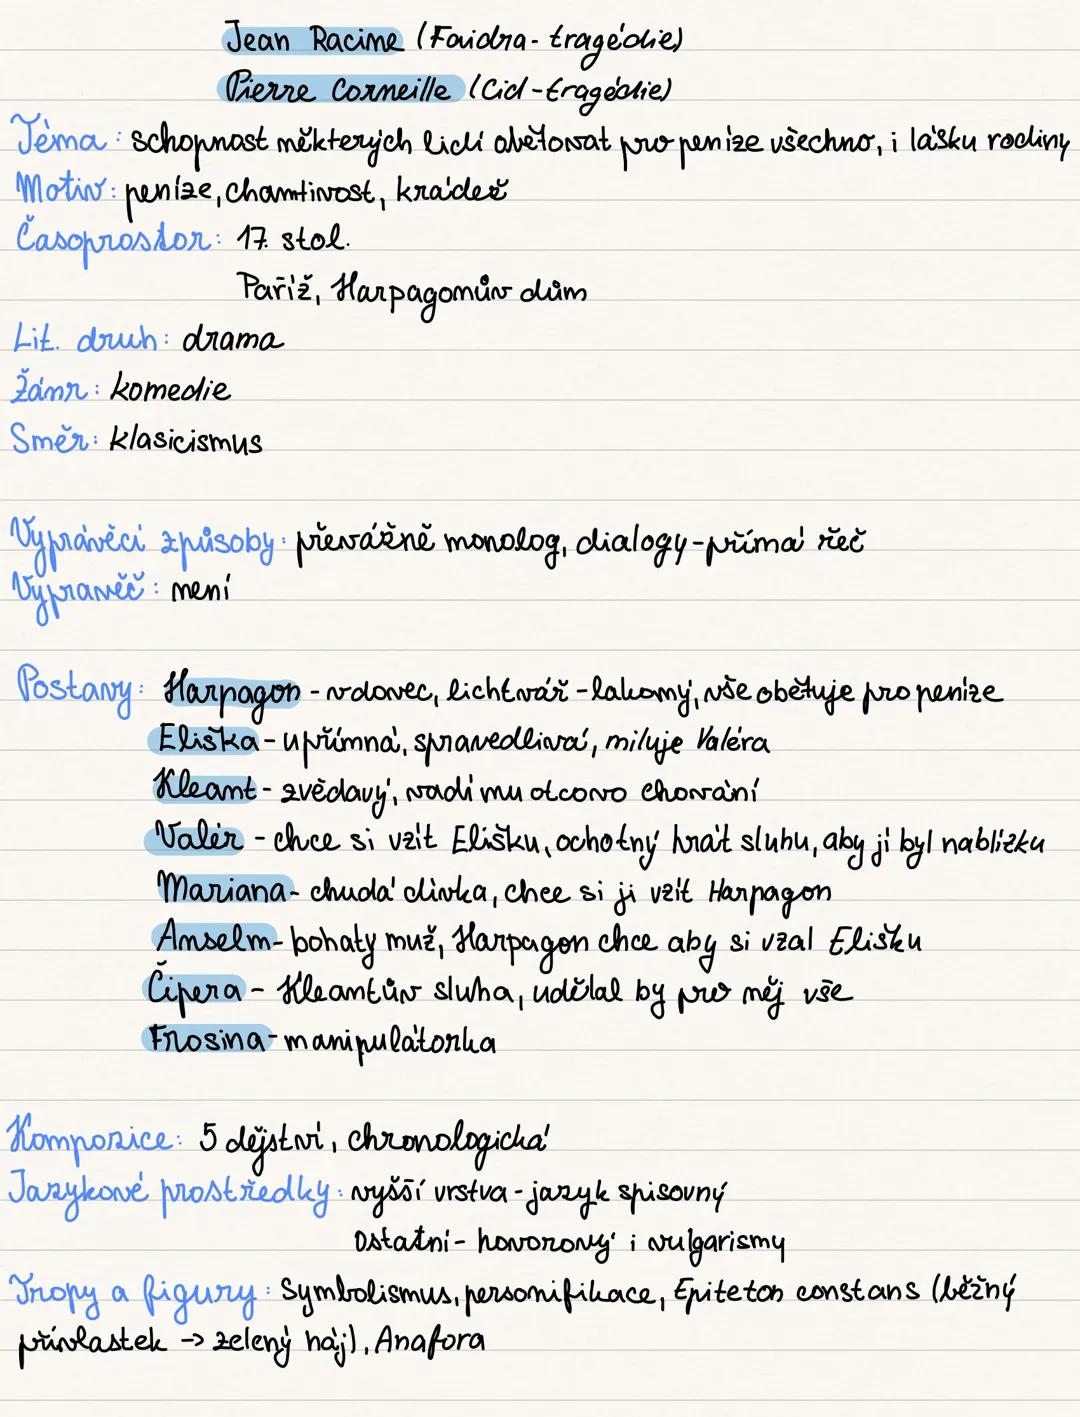 Jean Racine (Faidra - tragédie)
Pierre Corneille (Cid - tragédie)
Téma: schopnost některých lidí obětovat pro peníze všechno, i lásku rodiny
Motiv: peníze, chamtivost, krádež
Časoprostor: 17. stol.
Paříž, Harpagonův dům
Lit. druh: drama
Žánr: komedie
Směr: klasicismus
Vyprávěcí způsoby: převážně monolog, dialogy - přímá řeč
Vypravěč: není
Postavy: Harpagon - vdovec, lichtvář - lakomý, vše obětuje pro peníze
Eliška - upřímná, spravedlivá, miluje Valéra
Kleant - zvědavý, vadí mu otcovo chování
Valér - chce si vzít Elišku, ochotný hrát sluhu, aby jí byl nablízku
Mariana - chudá dívka, chce si ji vzít Harpagon
Anselm - bohatý muž, Harpagon chce aby si vzal Elišku
Čipera - Kleantův sluha, udělal by pro něj vše
Frosina - manipulátorka
Kompozice: 5 dějství, chronologická
Jazykové prostředky: vyšší vrstva - jazyk spisovný
Ostatní - hovorový i vulgarismy
Tropy a figury: Symbolismus, personifikace, Epiteton constans (běžný
přívlastek -> zelený háj), Anafora